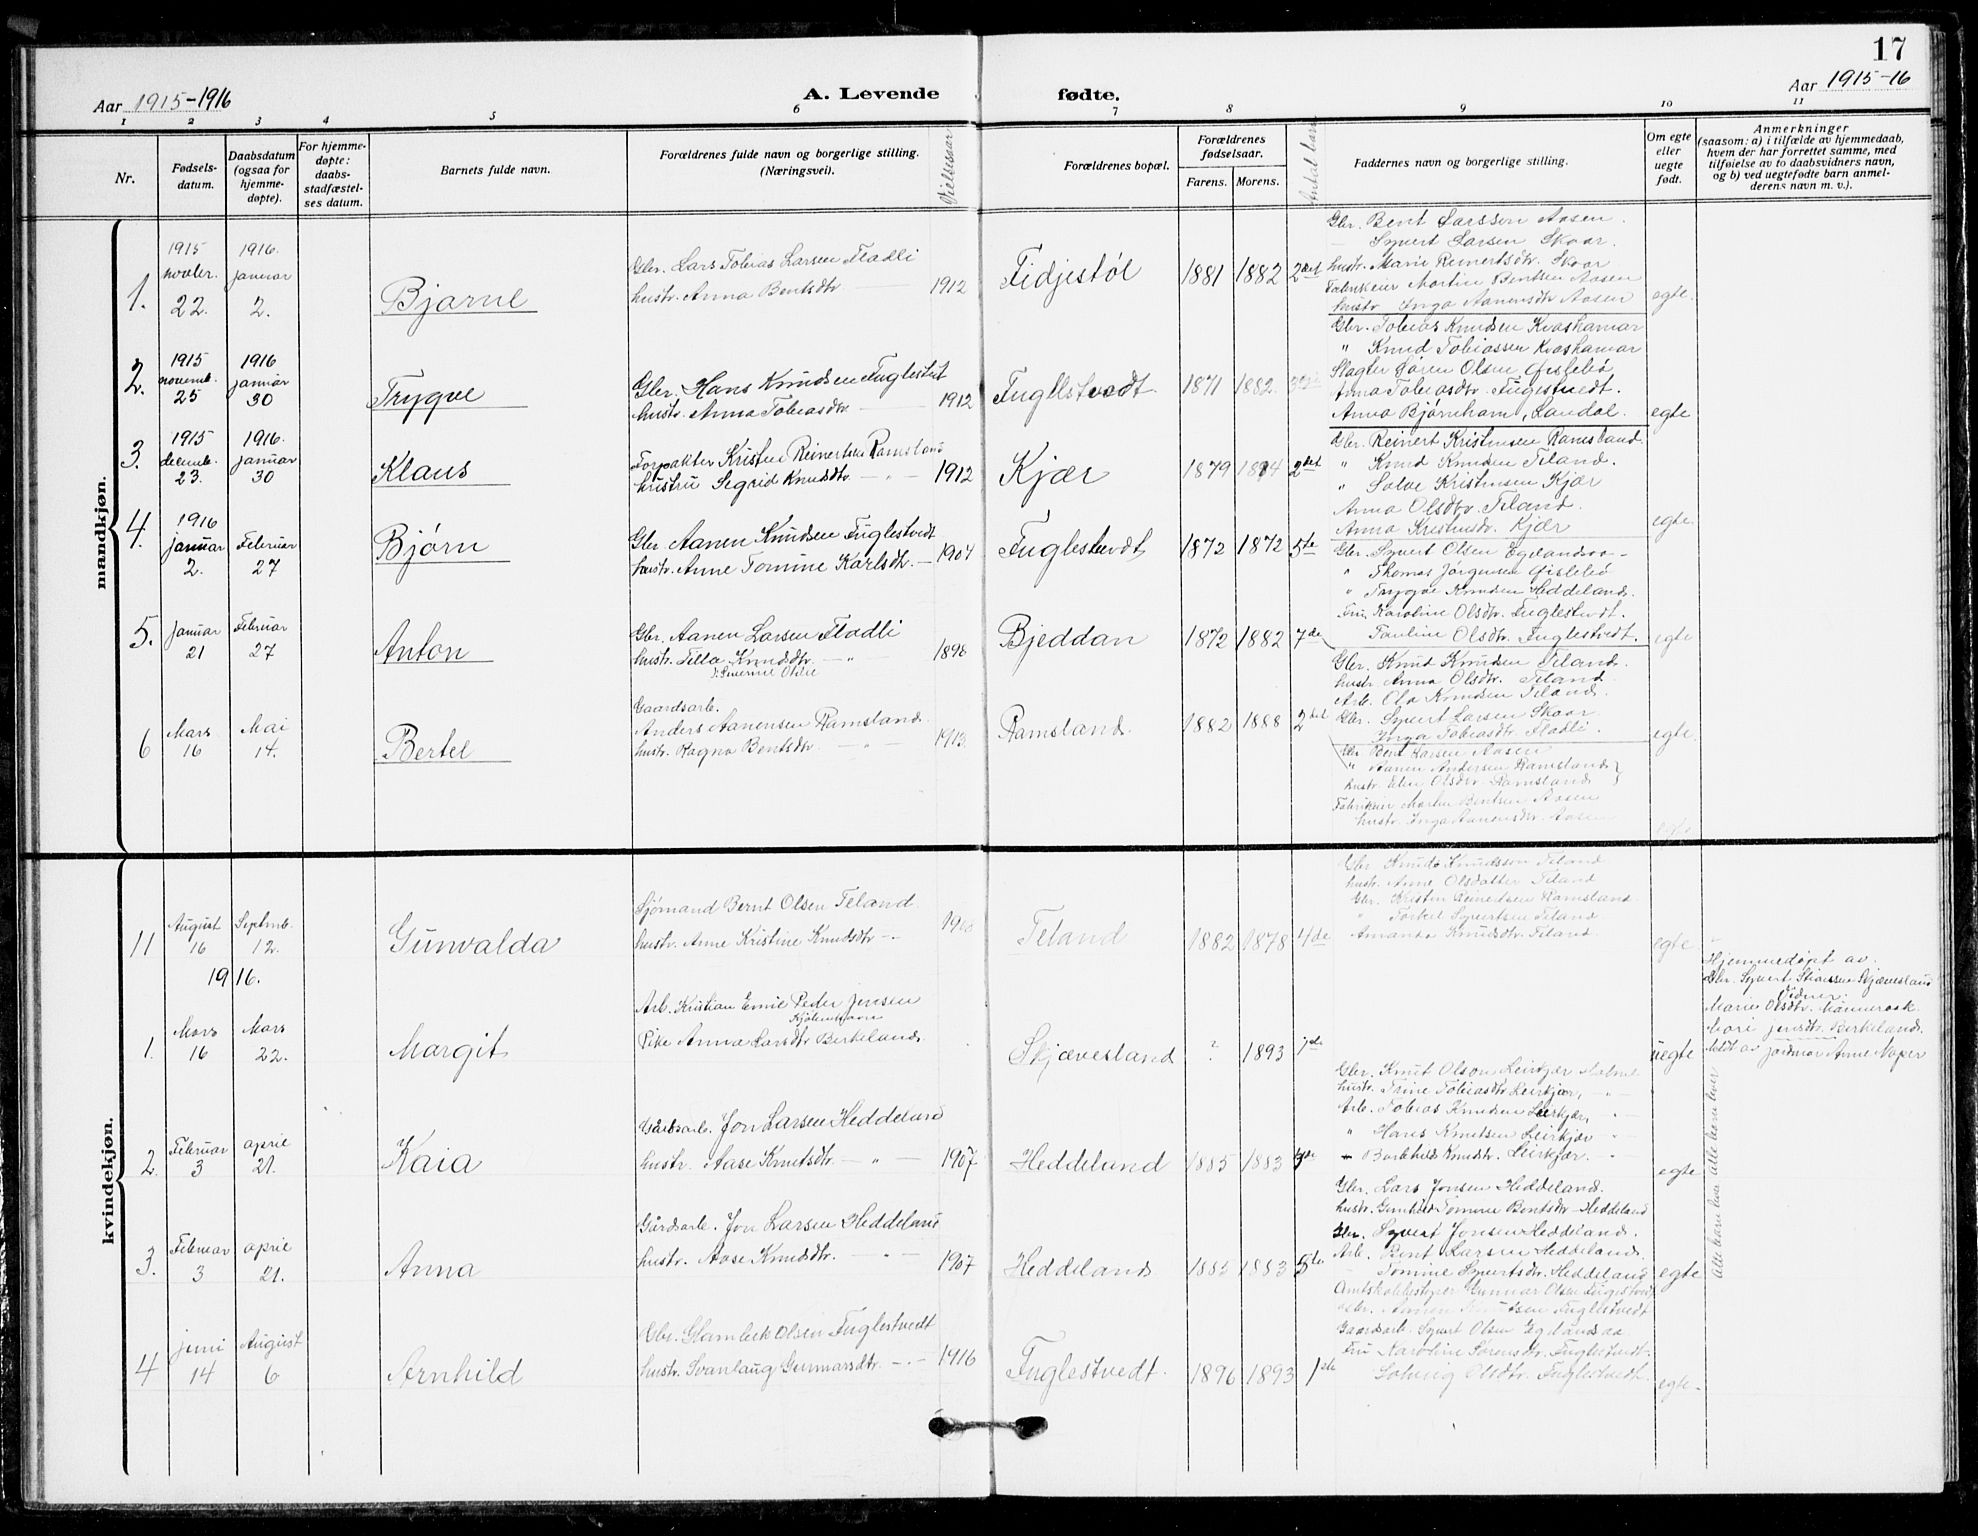 17
Aar 1915-1916
A. Levende fødte.
Aar 1915-16
1 2 3 4 5 6 7 8 9 10 11
Nr.
Fødsels-
datum.
Daabsdatum
(ogsaa for
hjemme-
døpte).
For hjemme-
døpte:
daabs-
stadfæstel-
ses datum.
Barnets fulde navn.
Forældrenes fulde navn og borgerlige stilling.
(Næringsvei).
Vielsesaar
Forældrenes bopæl.
Forældrenes
fødselsaar.
Farens. Morens.
Antal barn
Faddernes navn og borgerlige stilling.
Om egte
eller
uegte
født.
Anmerkninger
(saasom: a) i tilfælde av hjemmedaab,
hvem der har forrettet samme, med
tilføielse av to daabsvidners navn,
og b) ved uegtefødte barn anmel-
derens navn m. v.).
mandkjøn.
1.
1915
22.
1916
januar
2.
Bjarne
Gbr. Lars Tobias Larsen Fladli
hustr. Anna Bentsdtr.
1912
Fidjestøl
1881 1882 2det
Gbr. Bent Larsson Aasen.
Syvert Larsen, Skaar.
hustr. Marie Reinertsdtr. Skaar
Martin Bentsen Aasen
hustr. Inga Aanensdtr Aasen
egte.
2.
1915
novemb.
25
1916
januar
30
Trygve
Gbr. Hans Knudsen Fuglestvet
hustr. Anna Tobiasdtr
1912
Fuglestvedt
1871 1882.
Gbr. Tobias Knudsen Kvashamar
" Knud Tobiassen Kvashamar
Slagter Søren Olsen Gislebø
Anna Tobiasdtr. Fuglestvedt.
Anna Bjørnham, Landal.
egte
3.
1915
decemb.
23.
1916.
januar
30
Klaus
Forpakter Kristen Reinertsen Ramsland
hustru Sigrid Knudsdtr. - " -
1912
Kjær
1879 1884 2det
Gbr. Reinert Kristensen Ramsland.
" Knud Knudsen Teland.
" Salve Kristensen Kjær
Anna Olsdtr. Teland.
Anna Kristensdtr. Kjær
egte.
4.
1916
januar
2.
Februar
27
Bjørn
Gbr. Aanen Knudsen Fuglestvedt
hustr. Anne Tomine Karlsdtr.
1904
Fuglestvedt
1872 1872 5te
Gbr. Syvert Olsen Egelandsaa -
" Thomas Jørgensen Gislebø
" Trygve Knudsen Heddeland.
Fru Karoline Olsdtr. Fuglestvedt.
Pauline Olsdtr. Fuglestvedt.
egte
5.
januar
21
Februar
27
Anton
Gbr. Aanen Larsen Fladli
hustr. Tella Knudsdtr. - " -
1898
Bjeddan
1872 1882 7de
Gbr. Knud Knudsen Teland.
hustr. Anna Olsdtr. Teland.
Arb. Ola Knudsen Teland.
Gbr. Syvert Larsen Skaar
Inga Tobiasdtr. Fladli.
egte.
6
Mars
16
Mai
14.
Bertel
Gaardsarb.
Anders Aanensen Ramsland.
hustr. Ragna Bentsdtr. - " -
1913.
Ramsland.
1882 1888 2det
Gbr. Bent Larsen Aasen
" Aanen Andersen Ramsland
hustr. Elen Olsdtr. Ramsland
Martin Bentsen Aasen
hustr. Inga Aanensdtr. Aasen
egte
kvindekjøn.
11
August
16
Septmb.
12.
Gunvalda
Sjømand Bernt Olsen Teland.
hustr. Anne Kristine Knudsdtr -.
Teland
1882 1878 4de
Gbr. Knud Knudsson Teland
hustr. Anne Olsdatter Teland
Gbr. Kristen Reinertsen Ramsland
" Torkel Syvertsen Teland.
Amanda Knudsdtr. Teland.
egte
1916.
1.
Mars
16
Mars
22.
Margit
Arb. Kristian Emil Peder Jensen
Kjøbenhavn
Pike Anna Larsdtr Birkeland.
Skjævesland
? 1893 1ste
uegte
Hjemmedøpt av.
Gbr. Syvert Skjævesland
Vidner:
Marie Olsdtr.
Mari Jensdtr. Birkeland.
Meldt av jordmor Anne Naper
2.
Februar
3
april
21.
Kaia
Gårdsarb. Jon Larsen Heddeland
hustr. Aase Knutsdtr. - " -
1907
Heddeland
1885 1883
Gbr. Knut Olson Leirkjær
hustr. Trine Tobiasdtr Leirkjær,
Arb. Tobias Knudsen Leirkjær,
" Hans Knutsen Leirkjær
Knudsdtr. Leirkjær.
egte
alle barn lever
3.
Februar
3
april
21.
Anna
Gårdsarb. Jon Larsen Heddeland
hustr. Aase Knudsdtr. - " -
1907
Heddeland
1885 1883 5te
Gbr. Lars Jonsen Heddeland.
hustr. Gunhild Tomine Bentsdtr Heddeland
Gbr. Syvert Jonsen Heddeland.
Arb. Bent Larsen Heddeland.
Tomine Syvertsdtr. Heddeland
egte
alle barn lever
4
juni
14
August
6
Arnhild
Gbr. Olsen Fuglestvedt
hustr. Svanlaug Gunnarsdtr. - " -
1916
Fuglestvedt.
1896 1893 1ste
Gunnar Olsen Fuglestvedt
Gbr. Aanen Knutsen Fuglestvedt
Gaardsarb. Syvert Olsen Egelandsaa.
Fru Karoline Sørensdtr. Fuglestvedt.
Solveig Olsdtr. Fuglestvedt.
egte.